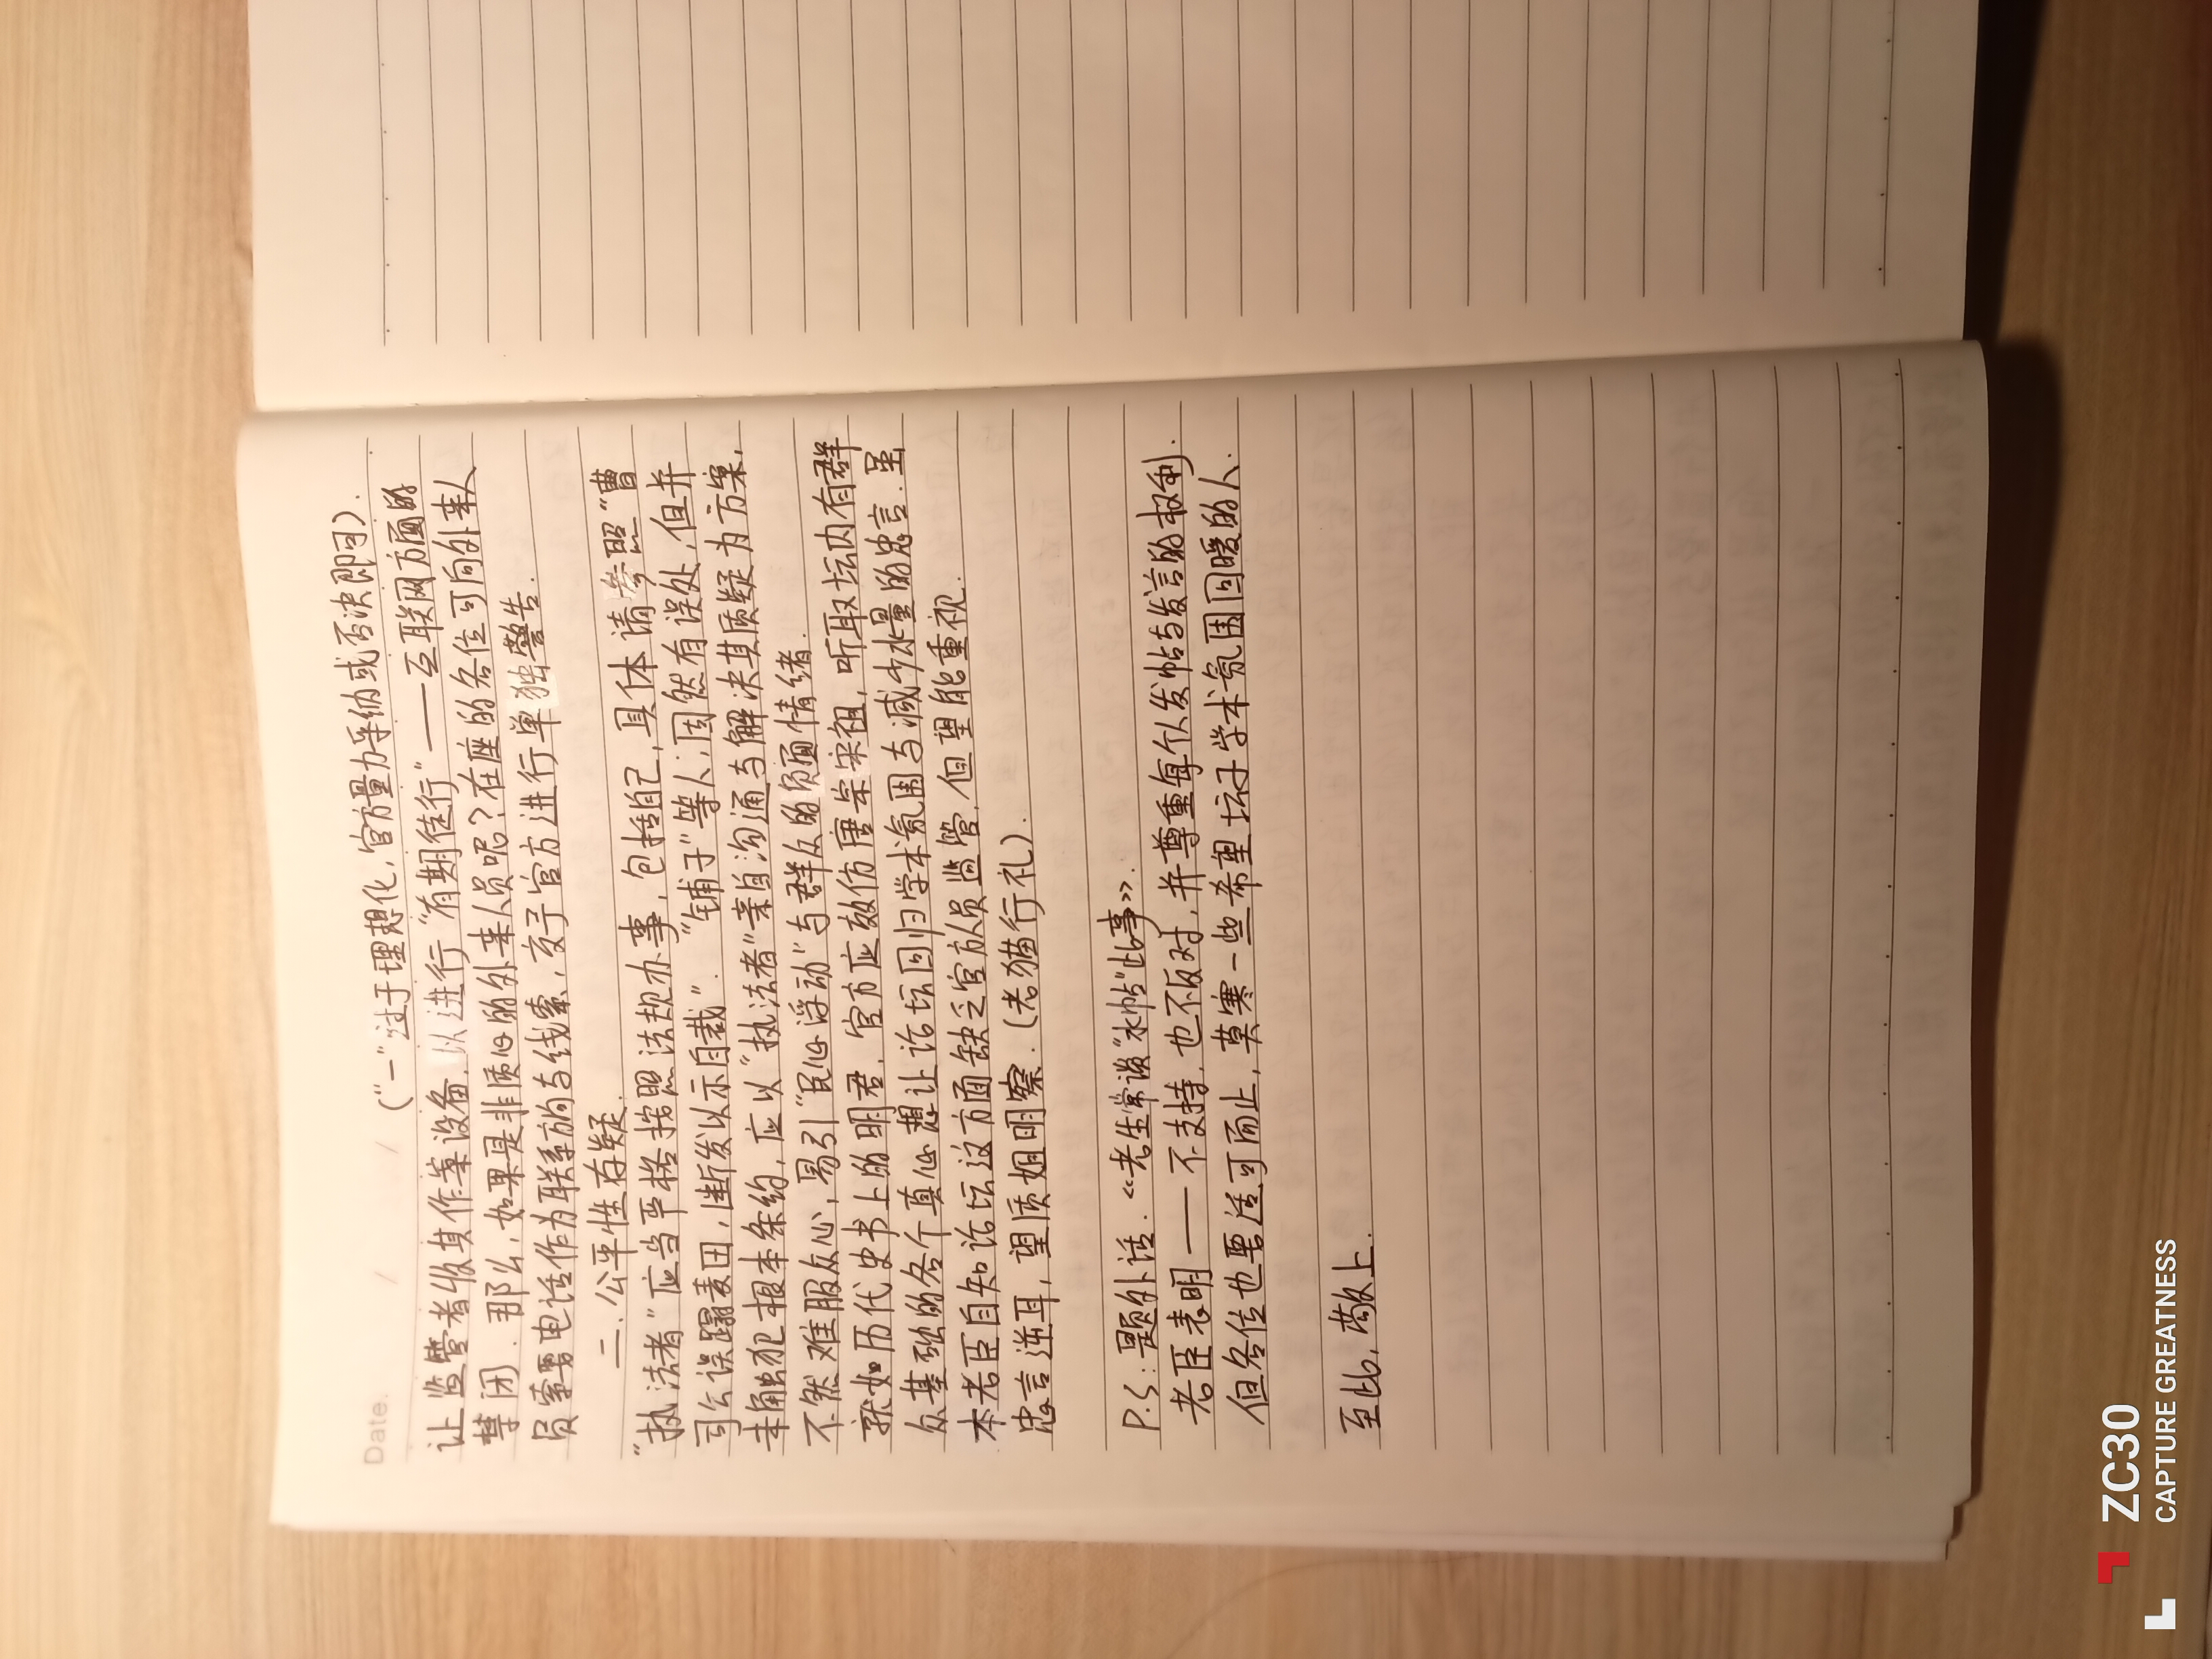 Date. / /
("一"过于理想化,官方量力采纳或否决即可).
让监管者收其作案设备,以进行"有期徒行"——互联网方面的
禁闭.那么,如果是非质心的外来人员呢?在座的各位可向外来人
员索要电话作为联系的与线索,交于官方进行单独警告.
二.公平性存疑.
"执法者"应当严格按照法规办事,包括自己,具体请参照"曹
司公误蹋麦田,断发以示自裁"."铺子"等人,固然有误处,但并
未触犯根本条约,应以"执法者"亲自沟通与解决其质疑为方案,
不然难服众心,易引"民心浮动"与群众的负面情绪.
就如历代史书上的明君,官方应效仿唐宗宋祖,听取坛内有群
众基础的各个真心想让论坛回归学术氛围与减少水量的忠言.虽
本老臣自知论坛这方面缺乏官放人员监管,但望能重视.
忠言逆耳,望质姐明察.(老猫行礼).
P.S:题外话.《老生常谈"水帖"此事》.
老臣表明——不支持,也不反对,并尊重每个人发帖与发言的权利.
但各位也要适可而止,莫寒一些希望坛子学术氛围回暖的人.
至此,敬上.
ZC30
CAPTURE GREATNESS